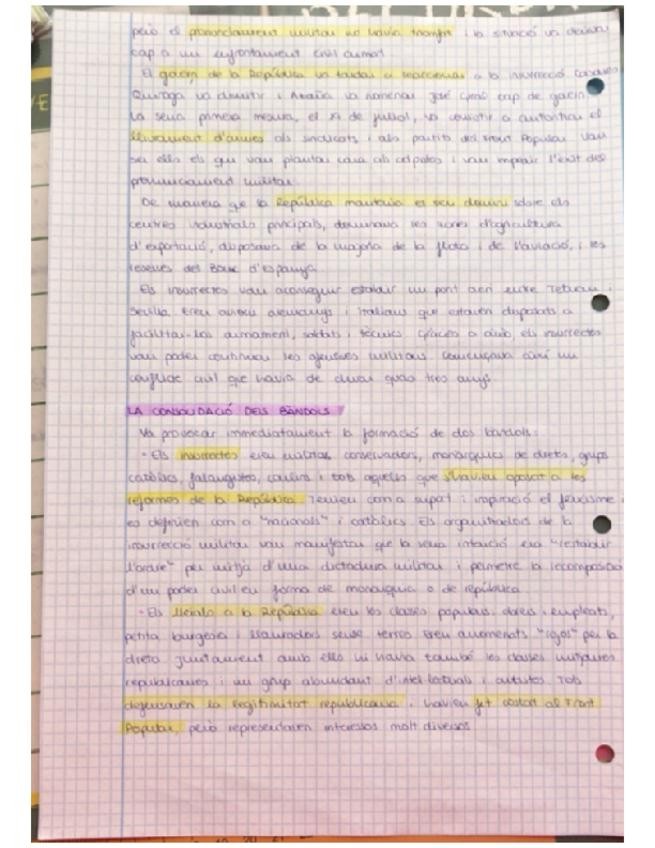 però el pronunciament militar no havia triomfat i la situació va derivar
cap a un enfrontament civil armat.
El govern de la República va tardar a reaccionar a la insurrecció. Casares
Quiroga va dimitir i Azaña va nomenar José Giral cap de govern.
La seua primera mesura, el 19 de juliol, va consistir a autoritzar el
lliurament d'armes als sindicats i als partits del Front Popular. Van
ser ells els que van plantar cara als colpistes i van impedir l'èxit del
pronunciament militar.
De manera que la República mantenia el seu domini sobre els
centres industrials principals, dominava les zones d'agricultura
d'exportació, disposava de la majoria de la flota i de l'aviació, i les
reserves del Banc d'Espanya.
Els insurrectes van aconseguir establir un pont aeri entre Tetuan i
Sevilla. Eren avions alemanys i italians que estaven disposats a
facilitar-los armament, soldats i tècnics. Gràcies a això, els insurrectes
van poder continuar les ofensives militars. Començava així un
conflicte civil que havia de durar quasi tres anys.
LA CONSOLIDACIÓ DELS BÀNDOLS
Va provocar immediatament la formació de dos bàndols:
- Els insurrectes eren militars conservadors, monàrquics de dretes, grups
catòlics, falangistes, carlins i tots aquells que s'havien oposat a les
reformes de la República. Tenien com a suport i inspiració el feixisme i
es definien com a "nacionals" i catòlics. Els organitzadors de la
insurrecció militar van manifestar que la seua intenció era "restablir
l'ordre" per mitjà d'una dictadura militar i permetre la recomposició
d'un poder civil en forma de monarquia o de república.
- Els lleials a la República eren les classes populars: obrers i empleats,
petita burgesia i llauradors sense terres. Eren anomenats "rojos" per la
dreta. Juntament amb ells hi havia també les classes mitjanes
republicanes i un grup abundant d'intel·lectuals i artistes. Tots
defensaven la legitimitat republicana i havien fet costat al Front
Popular, però representaven interessos molt diversos.